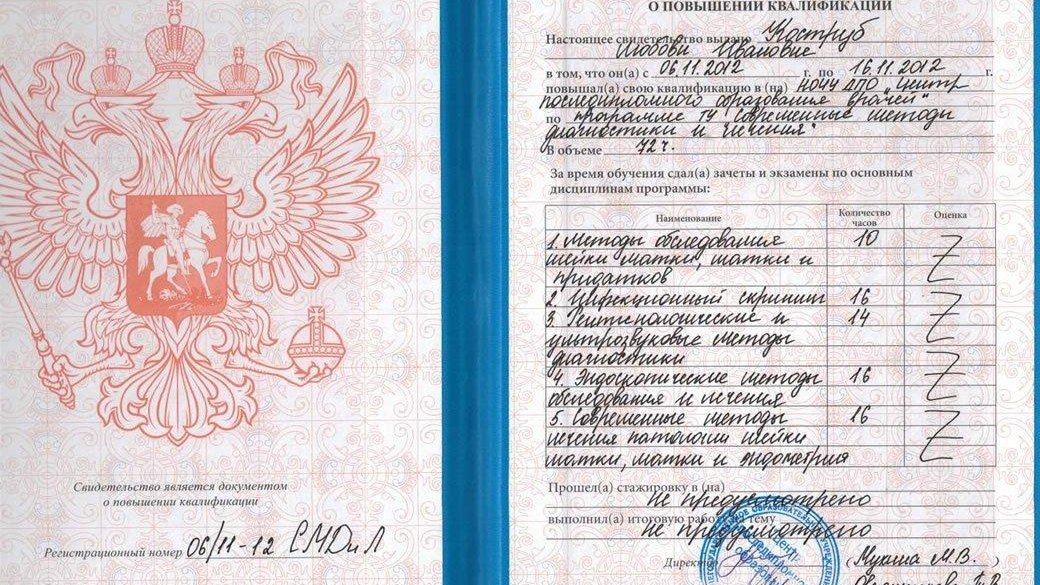 Свидетельство является документом
о повышении квалификации
Регистрационный номер 06/11-12 СМДиЛ
О ПОВЫШЕНИИ КВАЛИФИКАЦИИ
Настоящее свидетельство выдано Коструб
Любови Ивановне
в том, что он(а) с 06.11.2012 г. по 16.11.2012 г.
повышал(а) свою квалификацию в (на) НОЧУ ДПО "Центр
последипломного образования врачей"
по программе ТУ "Современные методы
диагностики и лечения"
В объеме 72 ч.
За время обучения сдал(а) зачеты и экзамены по основным
дисциплинам программы:
Наименование Количество часов Оценка
1. Методы обследования 10
шейки матки, матки и
придатков
2. Инфекционный скрининг 16
3. Рентгенологические и 14
ультрозвуковые методы
диагностики
4. Эндоскопические методы 16
обследования и лечения
5. Современные методы 16
лечения патологии шейки
матки, матки и эндометрия
Прошел(а) стажировку в (на)
Не предусмотрено
выполнил(а) итоговую работу на тему
не предусмотрено
Директор (Мукша М.В.)